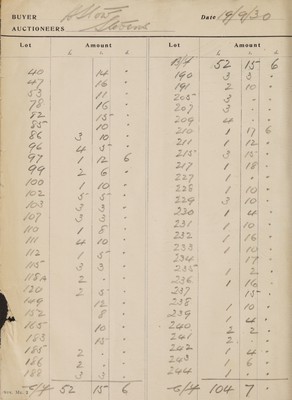 BUYER
Date 19/9/30
AUCTIONEERS Stevens
Lot Amount
£ s. d.
40 14 "
47 16 "
53 11 "
78 16 "
82 15 "
85 10 "
86 3 10 "
96 4 5 "
97 1 12 6
99 2 6 "
100 1 10 "
102 5 5 "
103 3 3 "
107 3 3 "
110 1 8 "
111 4 10 "
112 1 5 "
115 3 3 "
115A 2 " "
120 2 5 "
149 12 "
152 8 "
165 10 "
183 15 "
185 2 " "
186 2 " "
188 3 3 "
C/f 52 15 6
Lot Amount
£ s. d.
B/f 52 15 6
190 3 3 "
191 2 10 "
205 3 " "
207 3 " "
209 4 " "
210 1 17 6
211 1 12 "
215 3 15 "
217 1 18 "
227 1 " "
228 1 10 "
229 3 10 "
230 1 4 "
231 1 10 "
232 1 16 "
233 1 10 "
234 17 "
235 1 2 "
236 1 16 "
237 15 "
238 1 10 "
239 1 4 "
240 2 2 "
241 2 " "
242 1 4 "
243 1 6 "
244 1 " "
C/f 104 7 "